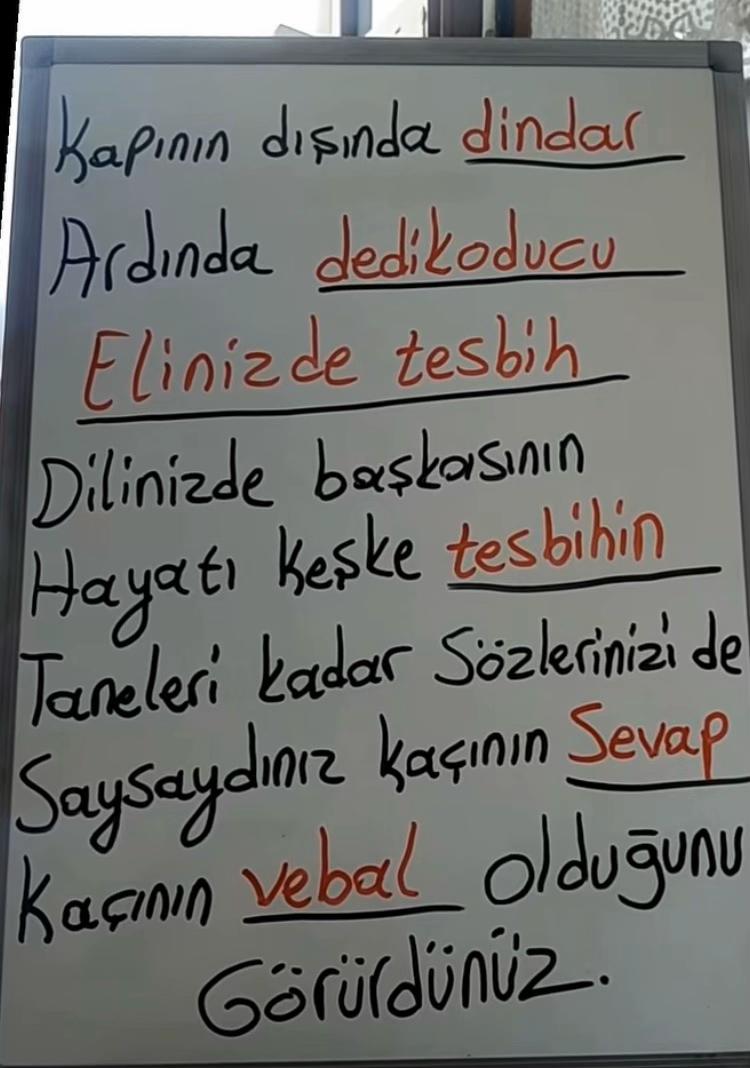 Kapının dışında dindar
Ardında dedikoducu
Elinizde tesbih
Dilinizde başkasının
Hayatı keşke tesbihin
Taneleri kadar Sözlerinizi de
Saysaydınız kaçının Sevap
Kaçının vebal olduğunu
Görürdünüz.